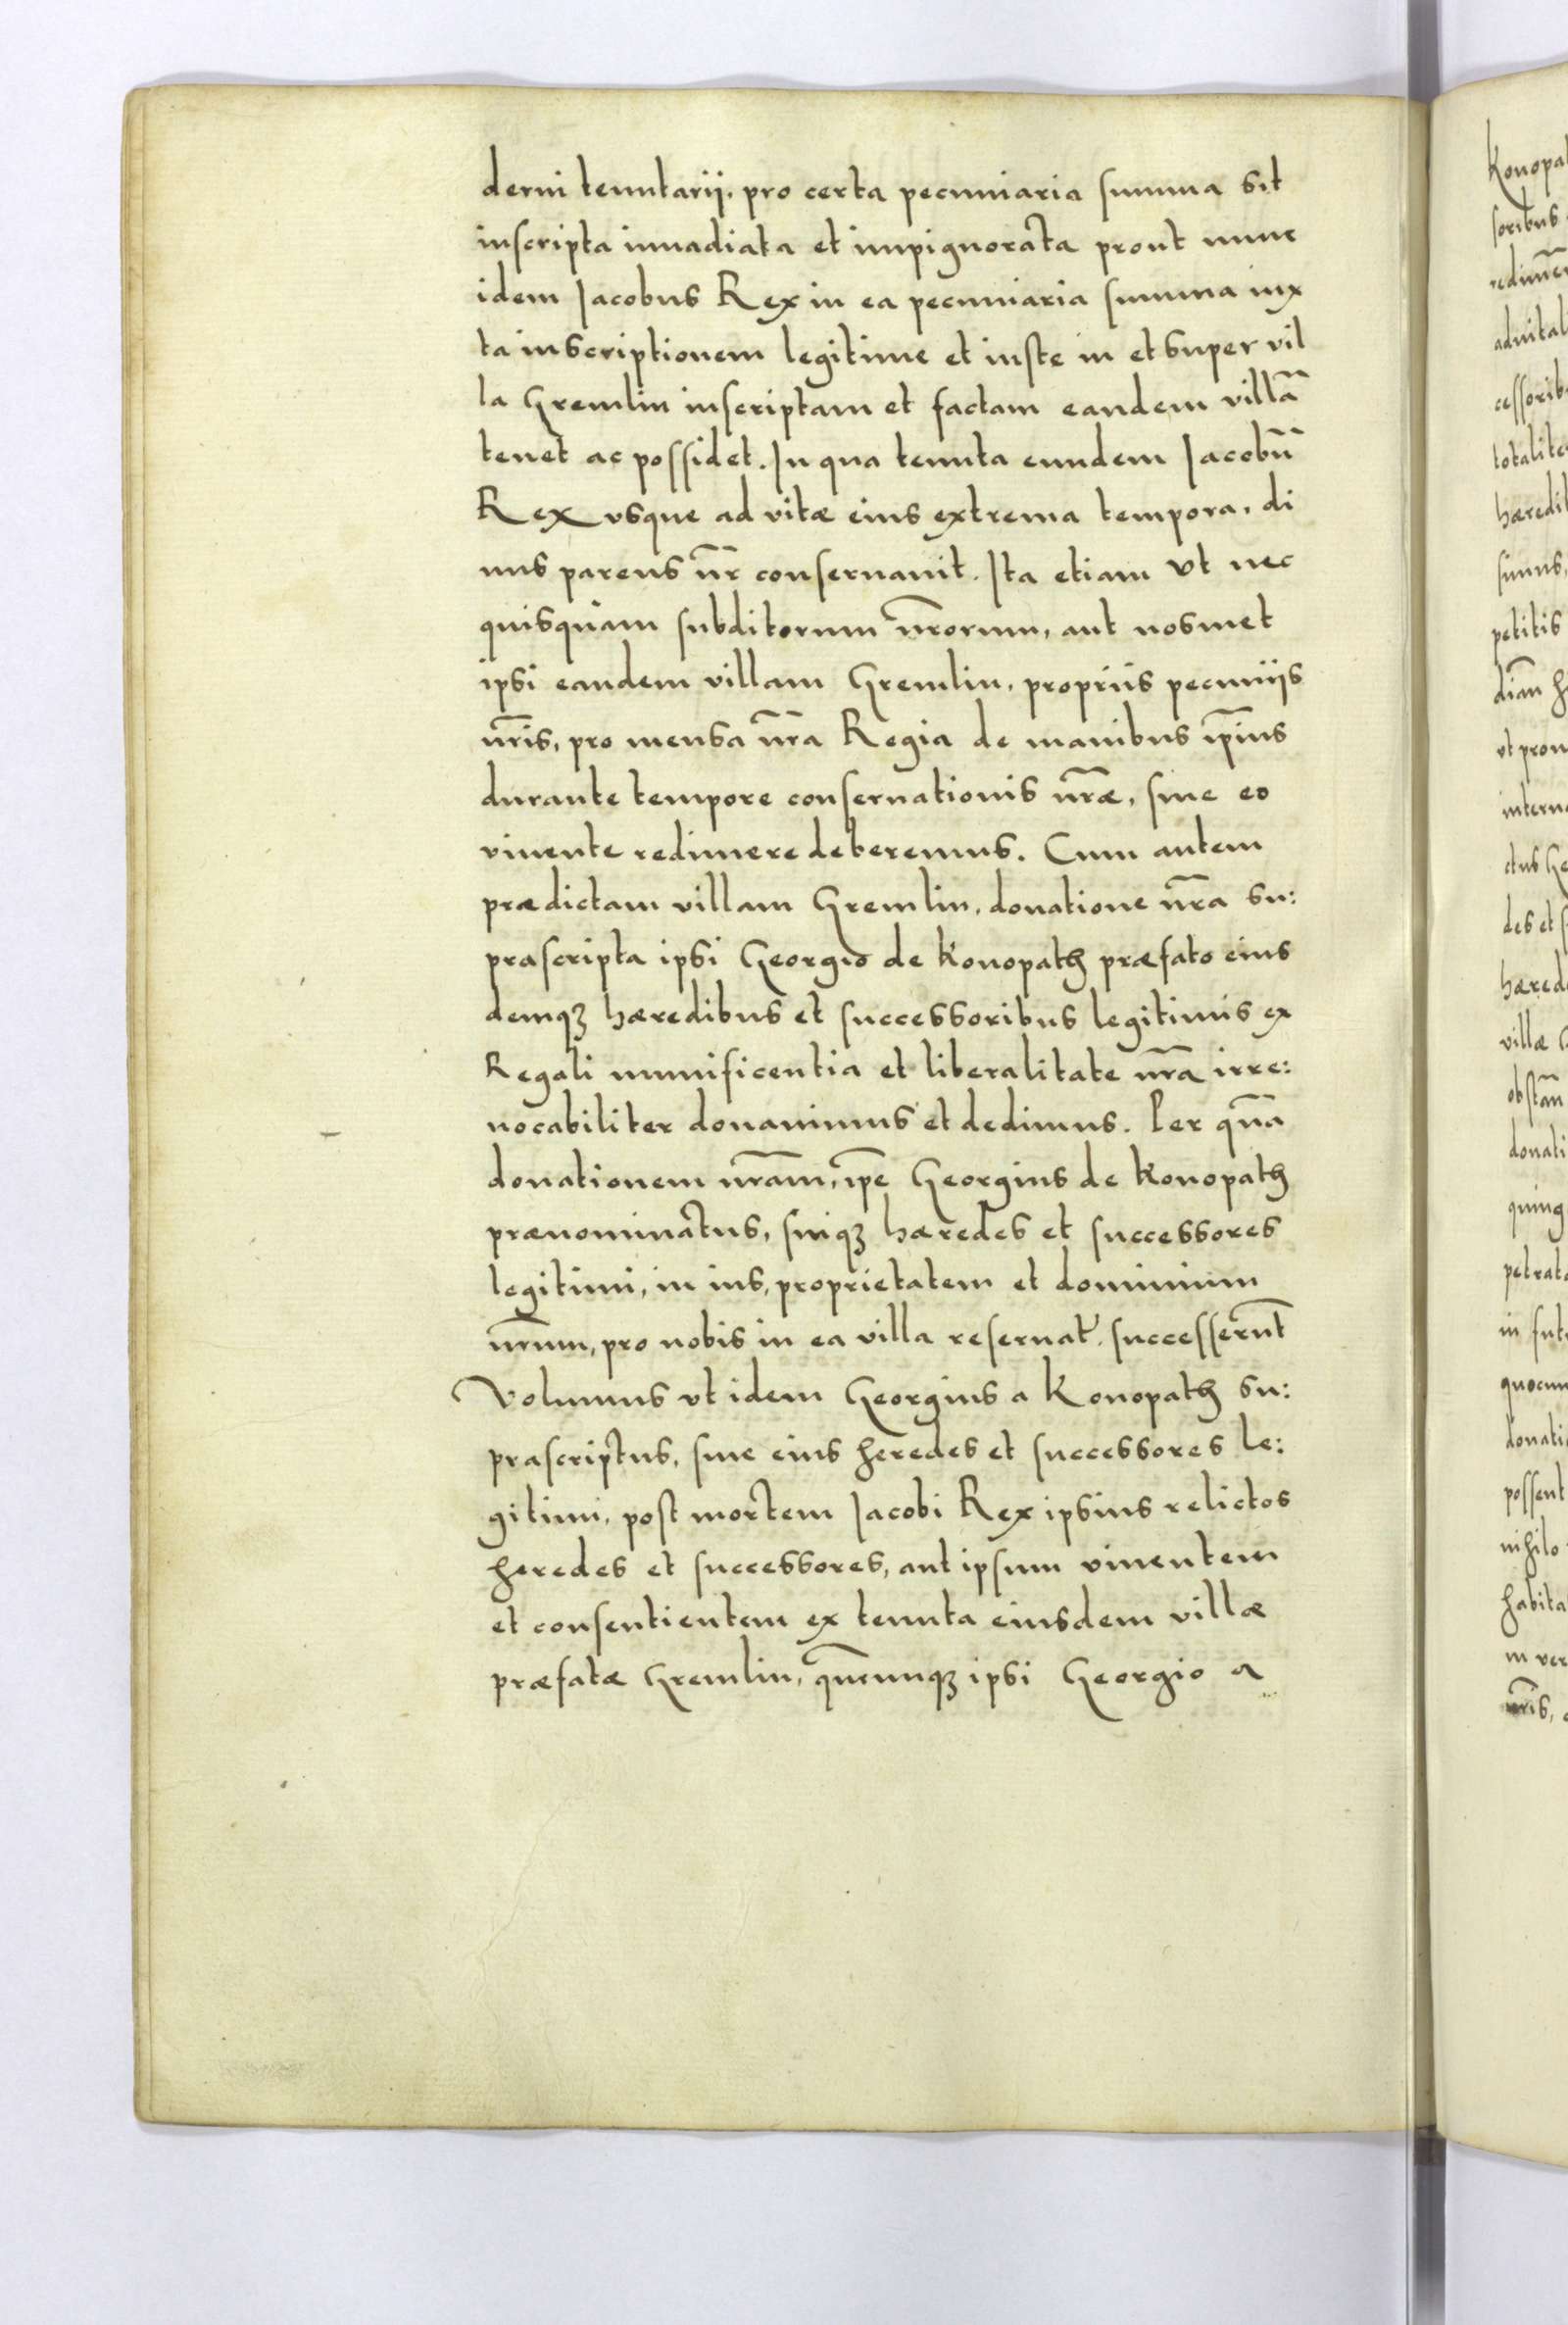 derni tenutarii, pro certa pecuniaria summa sit
inscripta inuadiata et impignorata prout nunc
idem Jacobus Rex in ea pecuniaria summa iux
ta inscriptionem legitime et iuste in et super vil
la Gremlin inscriptam et factam eandem villā
tenet ac possidet. In qua tenuta eundem Jacobū
Rex vsque ad vitæ eius extrema tempora, di
uus parens nr̄ conseruauit. Ita etiam vt nec
quisquam subditorum nr̄orum, aut nosmet
ipsi eandem villam Gremlin, propriis pecuniis
nr̄is, pro mensa nr̄a Regia de manibus ip̄ius
durante tempore conseruationis nr̄æ, siue eo
viuente redimere deberemus. Cum autem
prædictam villam Gremlin, donatione nr̄a su:
prascripta ipsi Georgio de Konopath præfato eius
demqꝫ hæredibus et successoribus legitimis ex
Regali munificentia et liberalitate nr̄a irre:
uocabiliter donauimus et dedimus. Per quā
donationem nr̄am, ip̄e Georgius de Konopath
prænominatus, suiqꝫ hæredes et successores
legitimi, in ius, proprietatem et dominium
nr̄um, pro nobis in ea villa reseruat̄. successerūt
Volumus vt idem Georgius a Konopath su:
prascriptus, siue eius heredes et successores le:
gitimi, post mortem Jacobi Rex ipsius relictos
heredes et successores, aut ipsum viuentem
et consentientem ex tenuta eiusdem villæ
præfatæ Gremlin, ipsi Georgio a
Konopa
redimē
cessorib
totalite
hæredit
petitis
vt prou
intern
des et
hæred
villæ
obstan
donati
petrat
in fut
quocun
donati
possent
nihilo
habita
nr̄is,